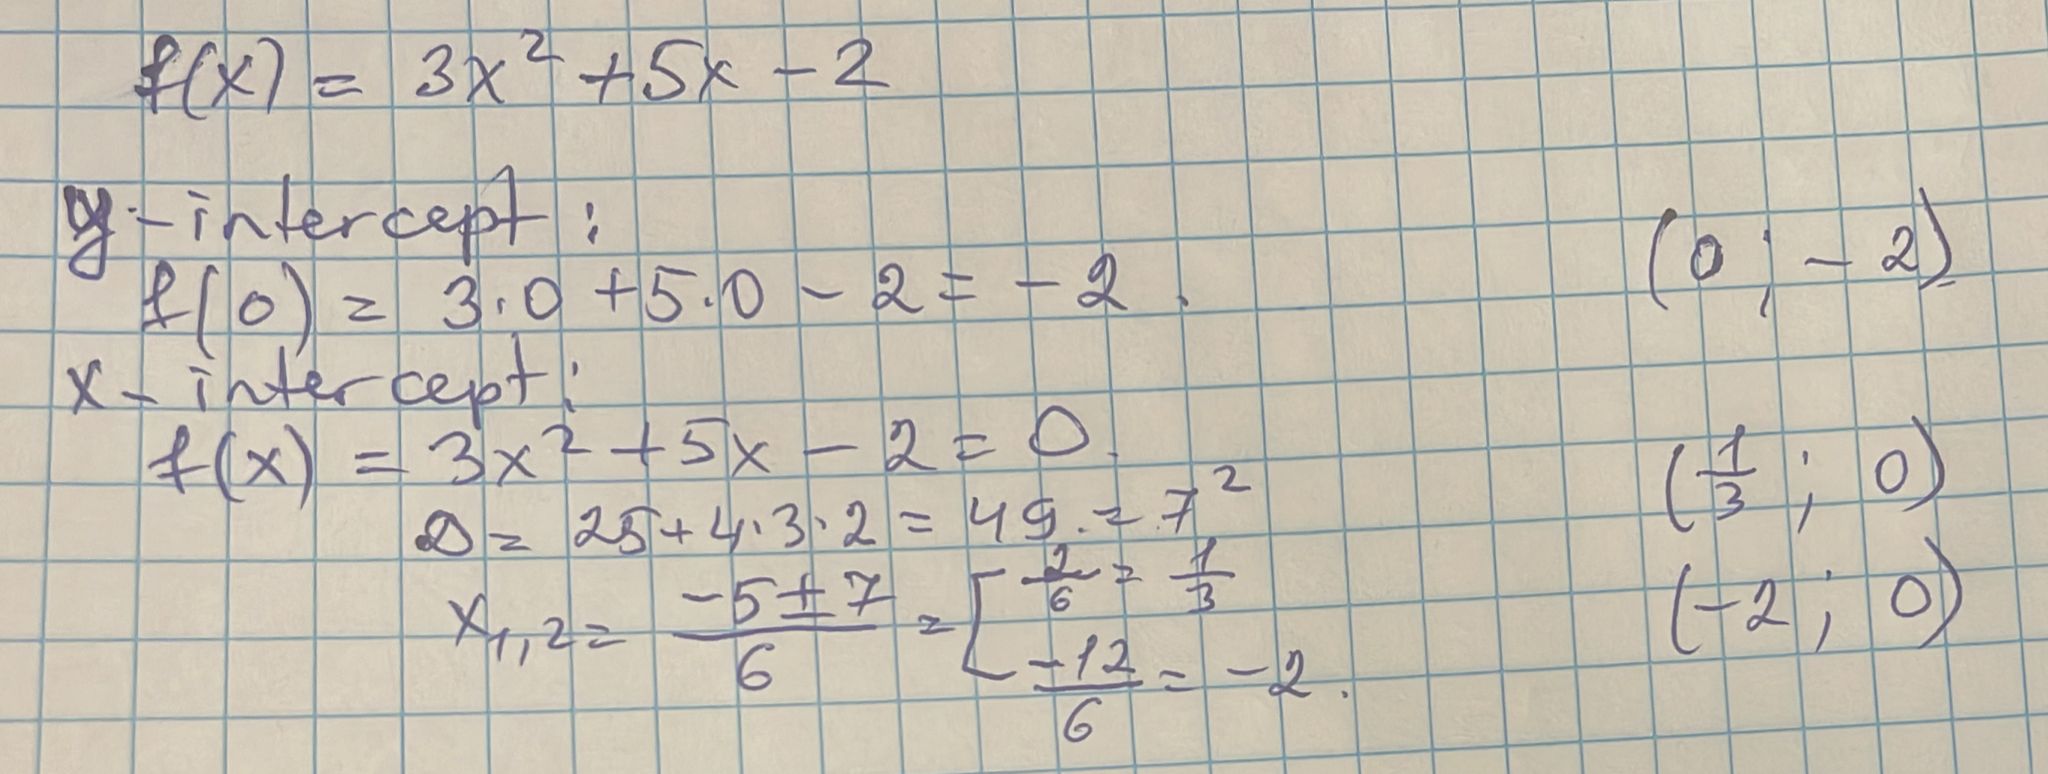 f(x) = 3x² + 5x - 2
y-intercept: (0; -2)
f(0) = 3·0 + 5·0 - 2 = -2.
x-intercept:
f(x) = 3x² + 5x - 2 = 0. (1/3; 0)
D = 25 + 4·3·2 = 49. = 7²
x₁,₂ = (-5 ± 7)/6 = [ 2/6 = 1/3 (-2; 0)
-12/6 = -2.